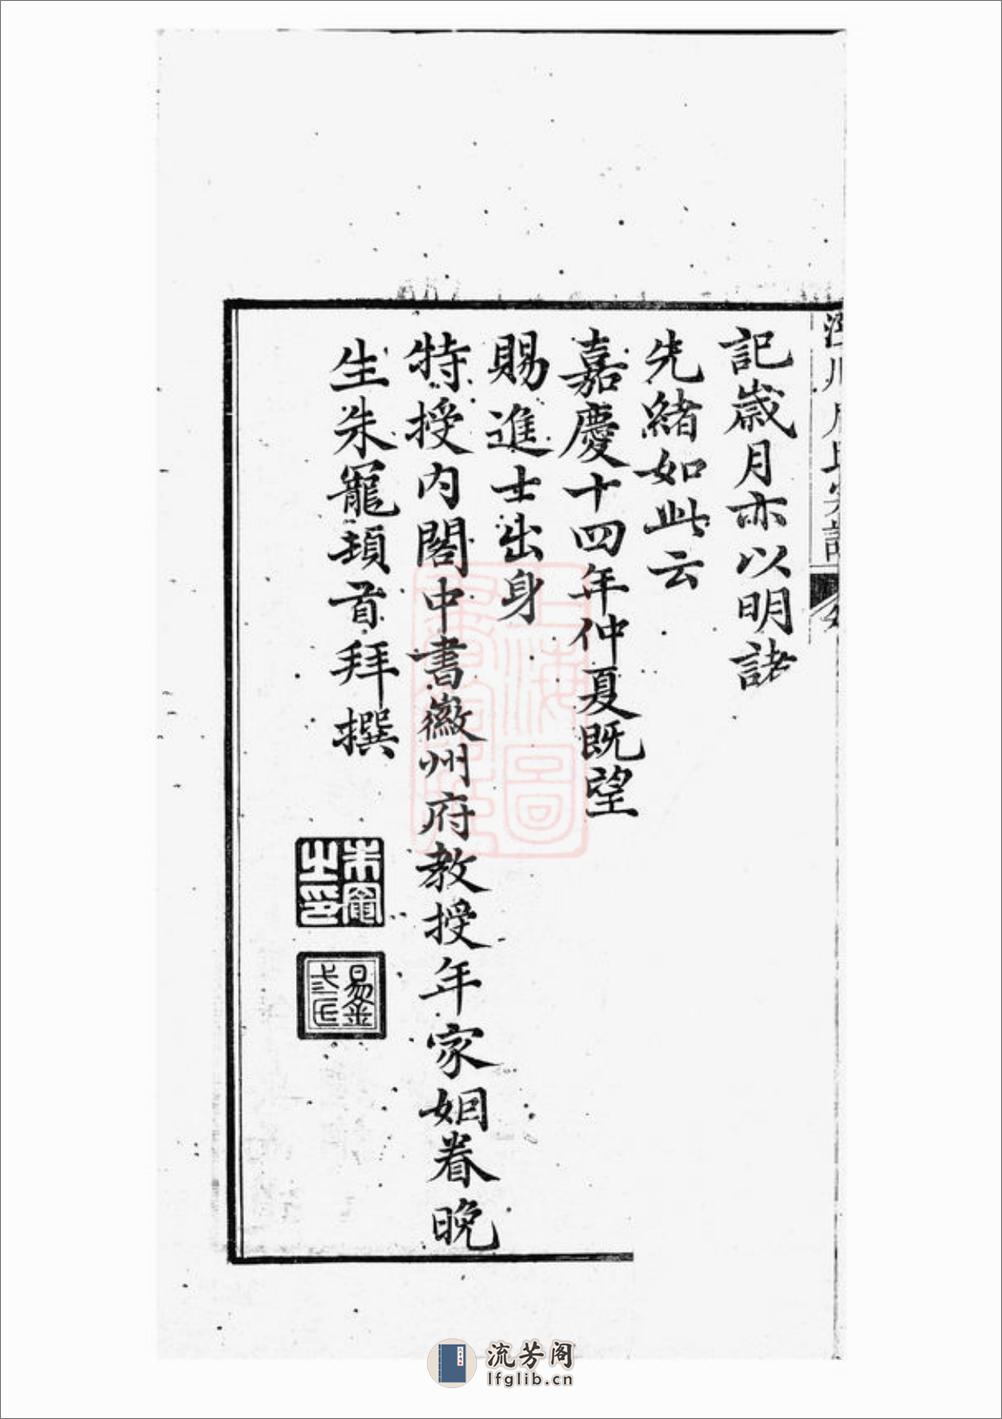 記歲月亦以明諸
先緒如此云
嘉慶十四年仲夏既望
賜進士出身
特授內閣中書徽州府教授年家姻眷晚
生朱寵頓首拜撰
上海圖
流芳阁
lfglib.cn